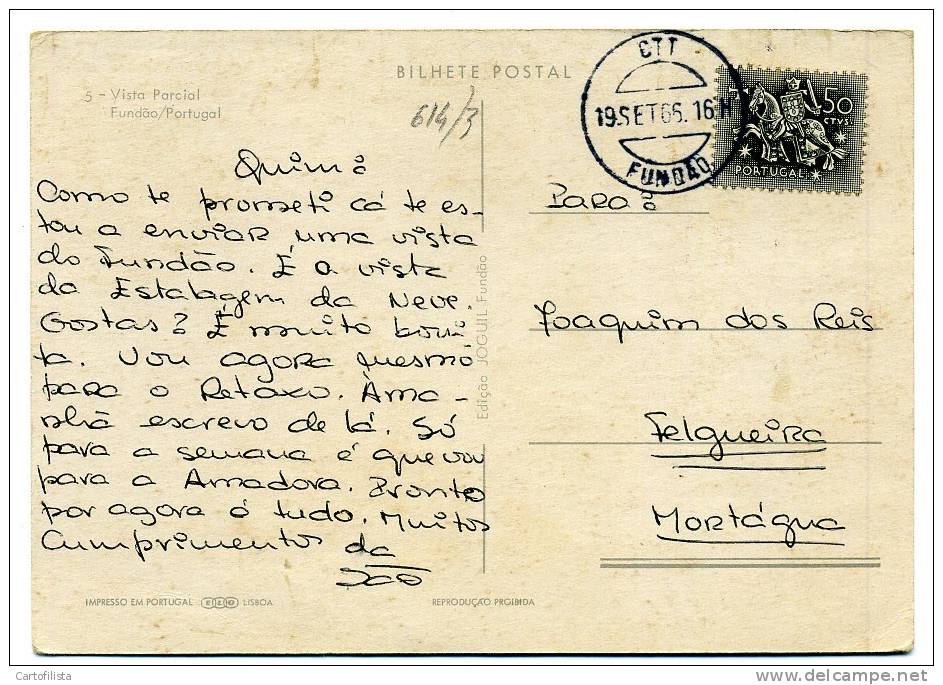 BILHETE POSTAL
5 - Vista Parcial
Fundão/Portugal
614/3
CTT
19.SET.66.16H
FUNDÃO
50
CTVS
PORTUGAL
Quim:
Como te prometi cá te es-
tou a enviar uma vista
do Fundão. É a vista
da Estalagem da Neve.
Gostas? É muito boni-
ta. Vou agora mesmo
para o Retaxo. Ama-
nhã escrevo de lá. Só
para a semana é que vou
para a Amadora. Pronto
por agora é tudo. Muitos
Cumprimentos da
Para:
Joaquim dos Reis
Felgueira
Mortágua
Edição JOGUIL Fundão
IMPRESSO EM PORTUGAL LISBOA
REPRODUÇÃO PROIBIDA
Cartofilista
www.delcampe.net